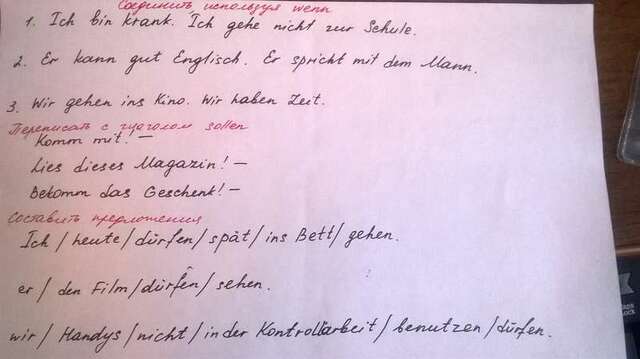 Соедини используя wenn
1. Ich bin krank. Ich gehe nicht zur Schule.
2. Er kann gut Englisch. Er spricht mit dem Mann.
3. Wir gehen ins Kino. Wir haben Zeit.
Переписать с глаголом sollen
Komm mit! –
Lies dieses Magazin! –
Bekomm das Geschenk! –
Составить предложения
Ich / heute / dürfen / spät / ins Bett / gehen.
er / den Film / dürfen / sehen.
wir / Handys / nicht / in der Kontrollarbeit / benutzen / dürfen.